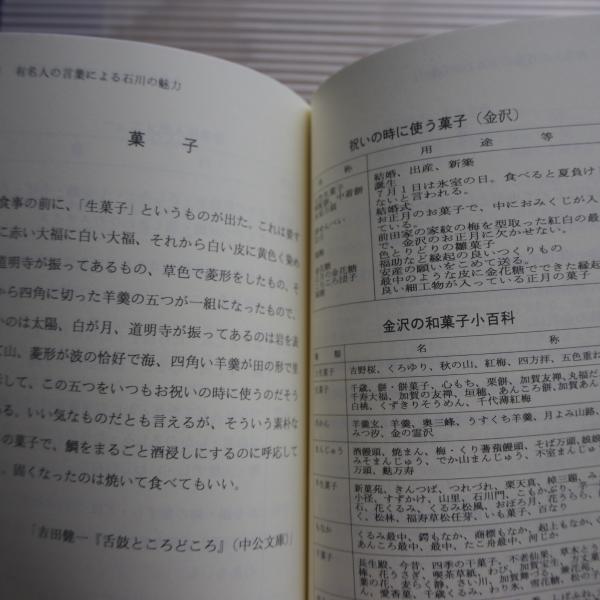 有名人の言葉による石川の魅力
菓子
食事の前に、「生菓子」というものが出た。これは
に赤い大福に白い大福、それから白い皮に黄色く
道明寺が振ってあるもの、草色で菱形をしたもの、そ
から四角に切った羊羹の五つが一組になったもので、
いのは太陽、白が月、道明寺が振ってあるのは岩を
て山、菱形が波の恰好で海、四角い羊羹が田の形で里
して、この五つをいつもお祝いの時に使うのだそう
ある。いい気なものだとも言えるが、そういう素朴な
の菓子で、鯛をまるごと酒浸しにするのに呼応して
。固くなったのは焼いて食べてもいい。
「吉田健一『舌鼓ところどころ』(中公文庫)」
祝いの時に使う菓子(金沢)
称 用途等
結婚、出産、新築
誕生
7月1日は氷室の日。食べると夏負け
ないと言われる。
結婚式
お正月のお菓子で、中におみくじが入
ている。
前田家の家紋の梅を型取った紅白の最
で、金沢のお正月に欠かせない。
色とりどりの雛菓子
福助など縁起の良いつくりもの
安産の願いをこめて送る。
最中のような皮に金花糖でできた縁起
良い細工物が入っている正月の菓子
金沢の和菓子小百科
種類 名称
吉野桜、くろゆり、秋の山、紅梅、四方拝、五色重ね
千歳、餅・餅菓子、心もち、栗餅、加賀友禅、丸福だ
千寿大福、加賀の友禅、垣穂、あんころ餅、加賀あん
白桃、くずきりそうめん、千代薄紅梅
羊羹玄、羊羹、奥三峰、うすくち羊羹、月よみ山路、
みつ汐、金の霊沢
まんじゅう 酒饅頭、焼まん、梅・くり薯蕷饅頭、そば万頭、娘
みそまんじゅう、でか山まんじゅう、不室まんじゅう
万頭、魁万寿
新菓苑、きんつば、つれづれ、栗天真、
小径、すずかけ、山里、石川門、こもかぶり、
石、花くるみ、くるみ松風、おぼろ月、花うらら、
く、松林、福寿草松任芽、いも菓子、百なり
もなか くるみ最中、鍔もなか、商標もなか、起上もなか、
あんころ最中、最中、たこ舟最中、河じか
長生殿、今昔、四季の千菓子、不老仙菓、草木とう
棒、花うさぎ、喫茶草紙、わび、加賀宝生、
の花、麦らく静、さい川、加賀舞づる、
ん、愛香菓、千歳くるみ、わり氷、雪花糖、松の